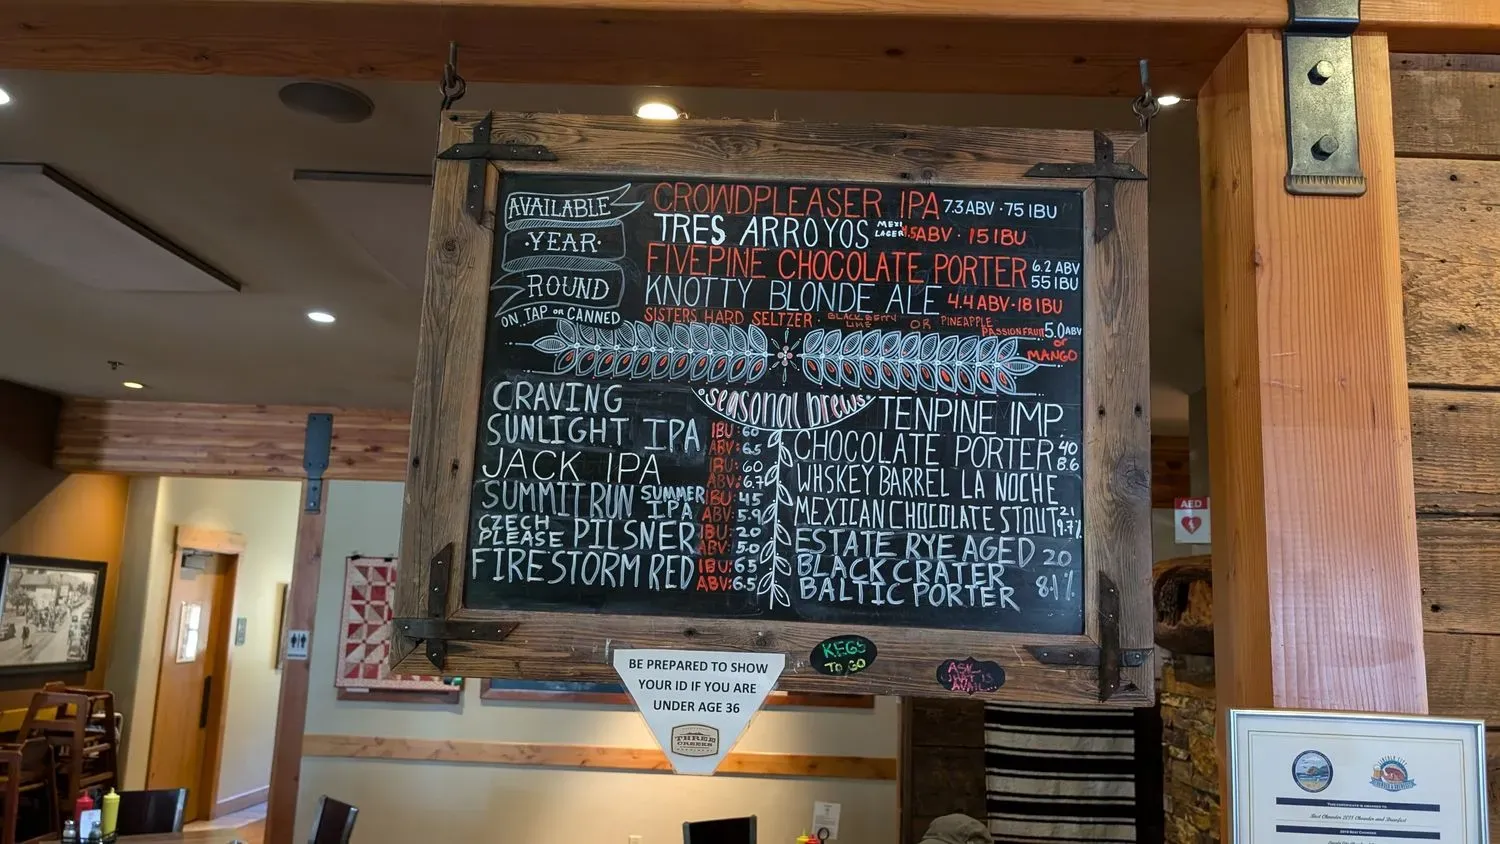 AVAILABLE
·YEAR·
ROUND
ON TAP or CANNED
CROWDPLEASER IPA 7.3 ABV · 75 IBU
TRES ARROYOS MEXI LAGER 4.5 ABV · 15 IBU
FIVEPINE CHOCOLATE PORTER 6.2 ABV 55 IBU
KNOTTY BLONDE ALE 4.4 ABV · 18 IBU
SISTERS HARD SELTZER · BLACKBERRY LIME OR PINEAPPLE PASSIONFRUIT 5.0 ABV
or
MANGO
seasonal brews
CRAVING
SUNLIGHT IPA IBU: 60 ABV: 6.5
JACK IPA IBU: 60 ABV: 6.7
SUMMIT RUN SUMMER IPA IBU: 45 ABV: 5.9
CZECH PLEASE PILSNER IBU: 20 ABV: 5.0
FIRESTORM RED IBU: 65 ABV: 6.5
TENPINE IMP.
CHOCOLATE PORTER 40 8.6
WHSKEY BARREL LA NOCHE
MEXICAN CHOCOLATE STOUT 21 9.7%
ESTATE RYE AGED 20
BLACK CRATER
BALTIC PORTER 8.1%
KEGS
TO GO
BE PREPARED TO SHOW
YOUR ID IF YOU ARE
UNDER AGE 36
THREE
CREEKS
AED
THIS CERTIFICATE IS AWARDED TO